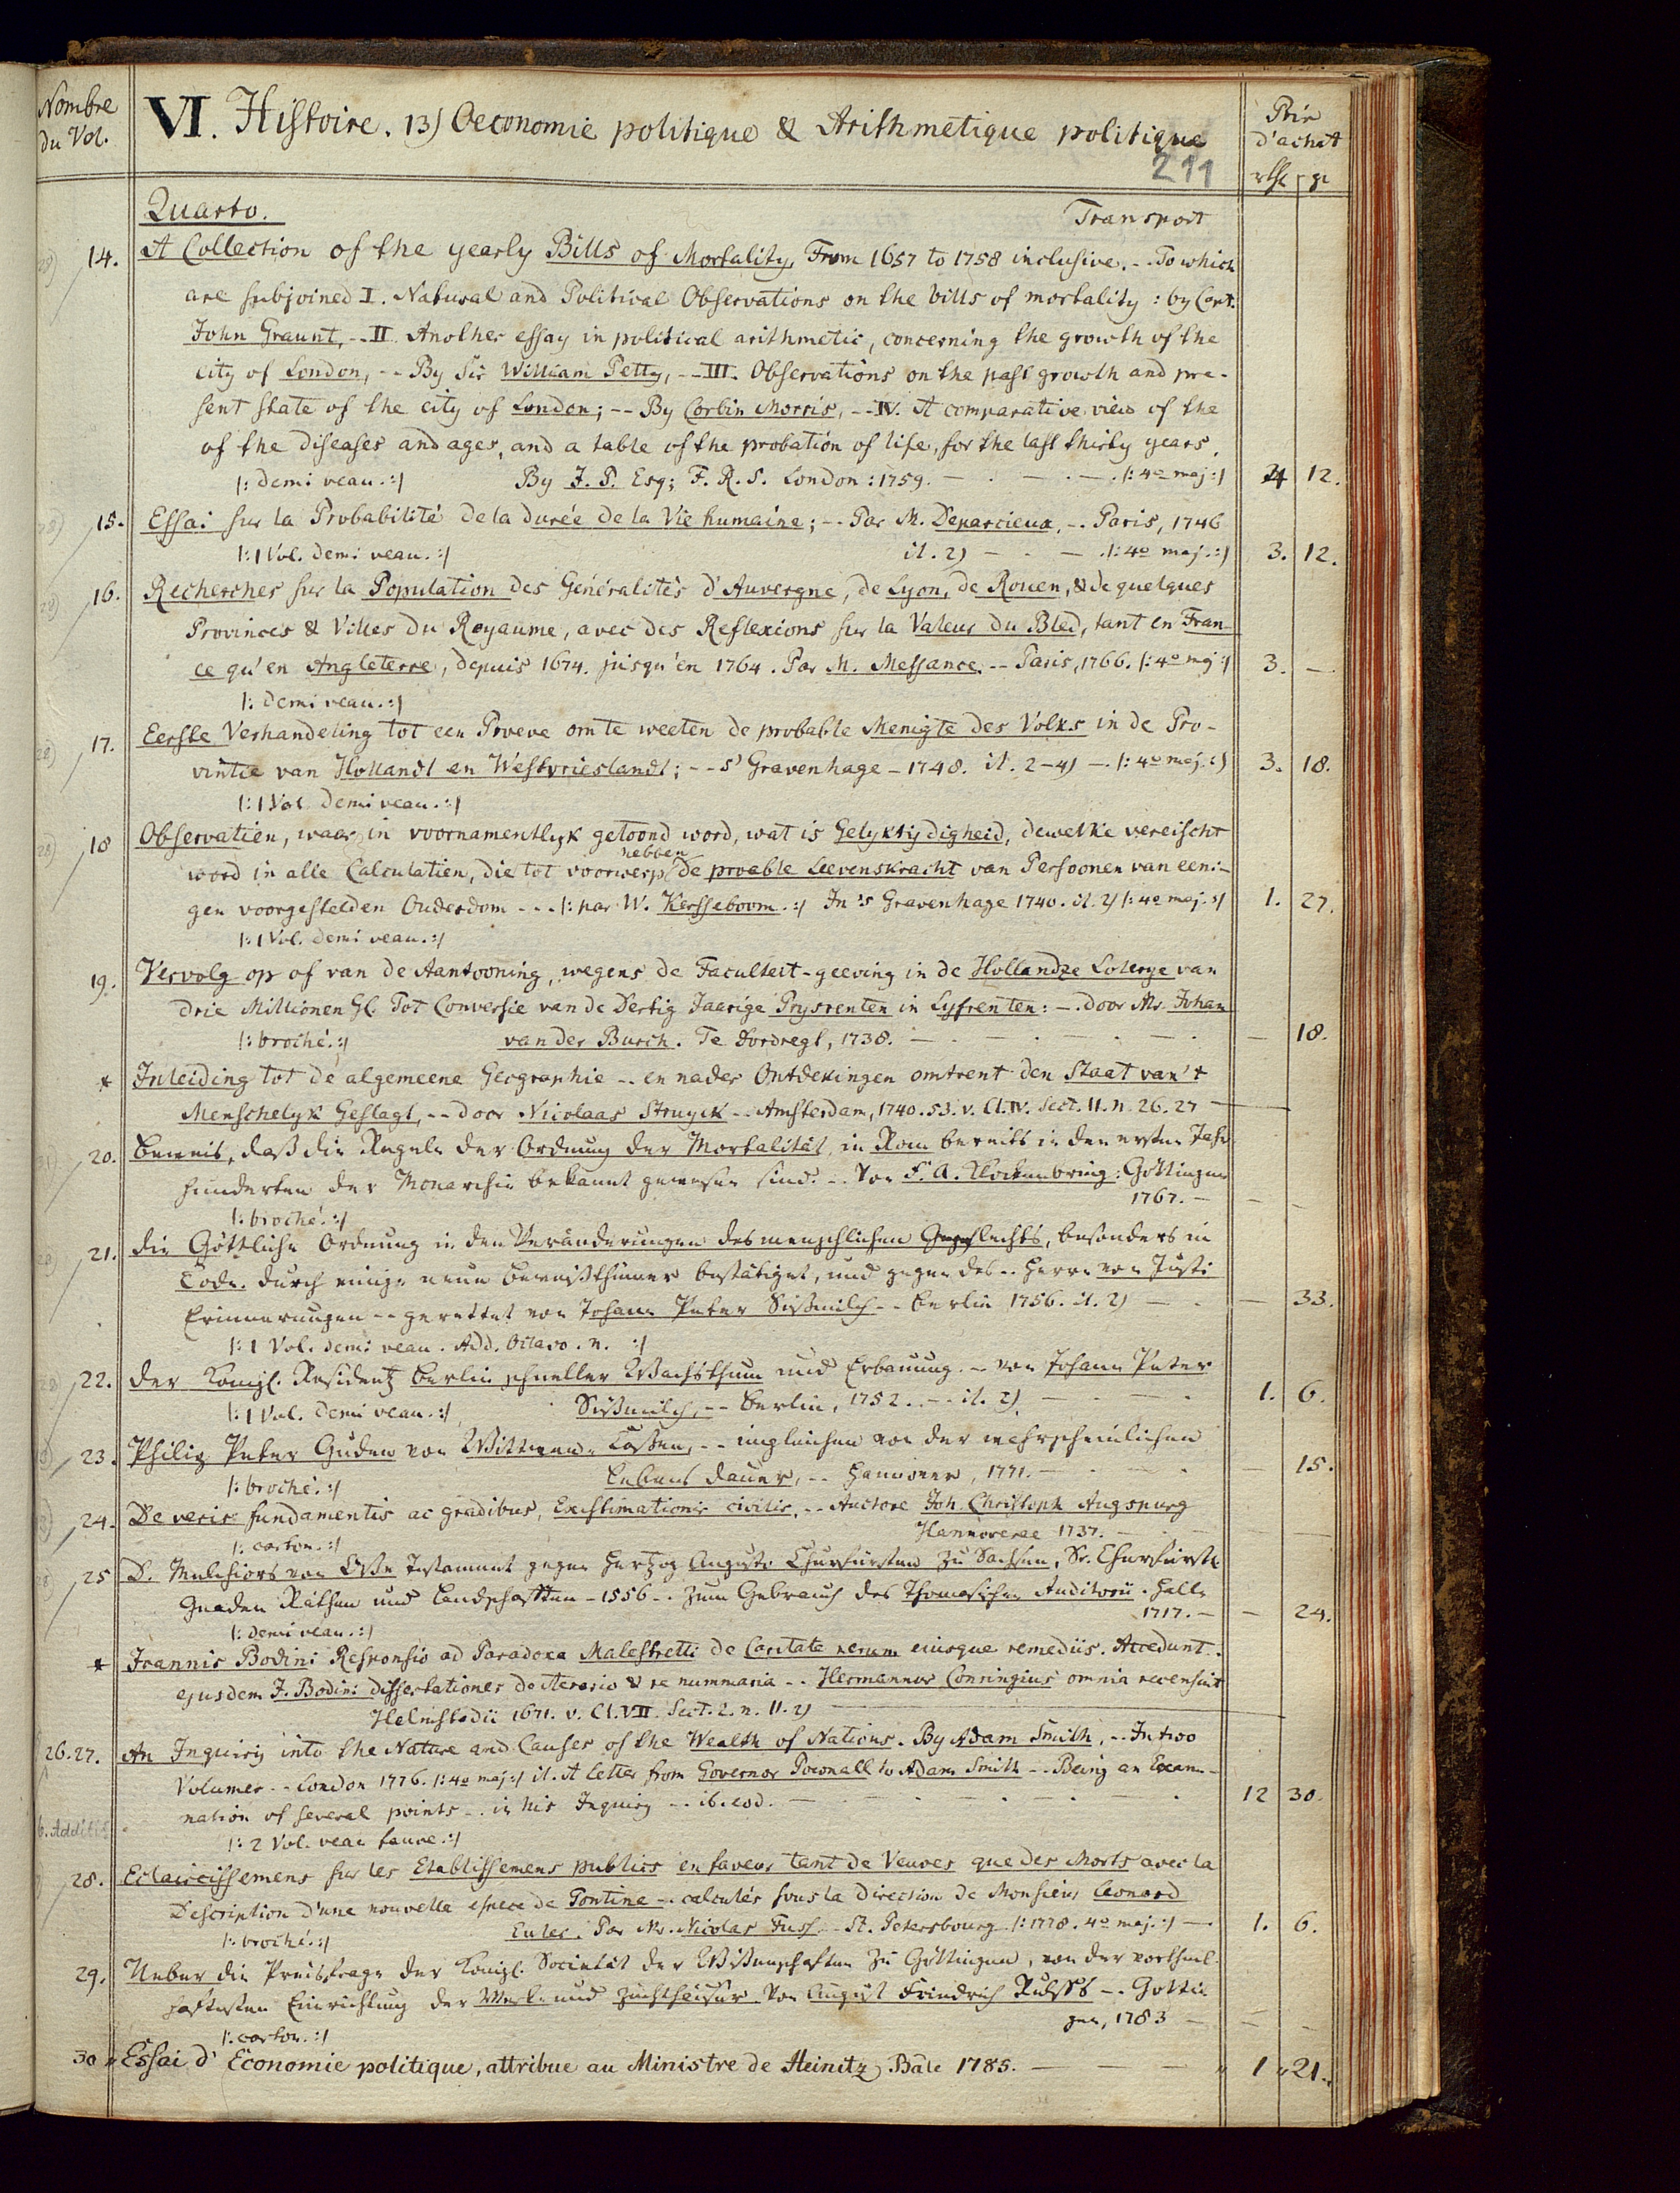 Nombre du Vol.
VI. Histoire. 13) Oeconomie politique & Arithmetique politique
Prix d'achat
211
rth gr
Quarto. Transport
14. A Collection of the yearly Bills of Mortality, From 1657 to 1758 inclusive. -- To which
are subjoined I. Natural and Political Observations on the bills of mortality: by Capt.
John Graunt, -- II Another essay in political arithmetic, concerning the growth of the
city of London, -- By Sir William Petty, -- III. Observations on the past growth and pre-
sent state of the city of London; -- By Corbin Morris, -- IV. A comparative view of the
of the diseases and ages, and a table of the probation of life, for the last thirty years.
|: demi veau. :| By J. P. Esq; F. R. S. London: 1759. |: 4o maj :| 4 12.
15. Essai sur la Probabilité de la durée de la Vie humaine; -- Par M. Deparcieux, -- Paris, 1746
|: 1 Vol. demi veau. :| it. 2) |: 4o maj. :| 3. 12.
16. Recherches sur la Population des Généralités d'Auvergne, de Lyon, de Rouen, & de quelques
Provinces & Villes du Royaume, avec des Reflexions sur la Valeur du Bled, tant en Fran-
ce qu'en Angleterre, depuis 1674. jusqu'en 1764. Par M. Messance. -- Paris, 1766. |: 4o maj :| 3. —
|: demi veau. :|
17. Eerste Verhandeling tot een Proeve om te weeten de probable Menigte des Volks in de Pro-
vintie van Hollandt en Westvrieslandt; -- s' Gravenhage - 1748. it. 2-4) — |: 4o maj. :| 3. 18.
|: 1 Vol. demi veau. :|
18 Observatien, waar in voornamentlyk getoond word, wat is Gelyktydigheid, dewelke vereischt
hebben
word in alle Calculatien, die tot voorwerp de proable Leevenskracht van Persoonen van eeni-
gen voorgestelden Ouderdom --- |: par W. Kersseboom. :| In 's Gravenhage 1740. it. 2) |: 4o maj. :| 1. 27.
|: 1 Vol. demi veau. :|
19. Vervolg op of van de Aantooning, wegens de Faculteit-geeving in de Hollandze Loterye van
drie Millionen Gl. Tot Conversie van de Dertig Jaarige Prysrenten in Lyfrenten: —. door Mr. Johan
|: broché. :| van der Burch. Te dordregt, 1738. — 18.
* Inleiding tot de algemeene Geographie -- en nader Ontdekingen omtrent den Staat van't
Menschelyk Geslagt, -- door Nicolaas Struyck -- Amsterdam, 1740. 53. v. Cl. IV. Sect. 11. n. 26. 27
20. Beweis, daß die Regeln der Ordnung der Mortalität, in Rom bereits in den ersten Jahr
hunderten der Monarchie bekannt gewesen sind. -- Von F. A. Klockenbring: Göttingen
1767.
|: broché. :|
21. die Göttliche Ordnung in den Veränderungen des menschlichen Geschlechts, besonders in
Tode. durch einige neue Beweißthümer bestätiget, und gegen des -- Herrn von Justi
Erinnerungen -- gerettet von Johann Peter Süßmilch -- Berlin 1756. it. 2) — 33.
|: 1 Vol. demi veau. Add. Octavo. n. :|
22. der Königl. Residentz Berlin schneller Wachsthum und Erbauung. -- von Johann Peter
|: 1 Vol. demi veau. :| Süßmilch, -- Berlin, 1752. -- it. 2). 1. 6.
23. Philip Peter Guden von Wittwen-Cassen, -- imgleichen von der wahrscheinlichen
|: broché. :| Lebens dauer, -- Hannover, 1771. — 15.
24. De veris fundamentis ac gradibus, Existimationis civilis. -- Auctore Joh. Christoph Augspurg
|: carton. :| Hannoverae 1737.
25 D. Melchiors von Osse Testament gegen Hertzog Augusto Churfürsten zu Sachsen, Sr. Churfürstl.
Gnaden Räthen und Landschafften - 1556 -. zum Gebrauch des Thomasischen Auditorii. Halle
1717. — 24.
|: demi veau. :|
* Joannis Bodini Responsio ad Paradoxa Malestretti de Caritate rerum eiusque remediis. Accedunt.
ejusdem J. Bodini dissertationes de Aerario & re nummaria -- Hermannus Conringius omnia recensuit
Helmstadii 1671. v. Cl. VII. Sect. 2. n. 11. 2)
26. 27. An Inquiry into the Nature and Causes of the Wealth of Nations. By Adam Smith, -- In two
Volumes -- London 1776. |: 4o maj :| it. A letter from Governor Pownall to Adam Smith -- Being an Exami-
nation of several points -- in his Inquiry -- ib. eod. 12 30.
6. Additis
|: 2 Vol. veau fauve. :|
28. Eclaircissemens sur les Etablissemens publics en faveur tant de Veuves que des Morts avec la
Description d'une nouvelle espece de Tontine -- calculés sous la Direction de Monsieur Leonard
|: broché. :| Euler. Par Mr. Nicolas Fuss. -- St. Petersbourg |: 1778. 4o maj. :| — 1. 6.
29. Ueber die Preisfrage der Königl. Societät der Wissenschaften zu Göttingen, von der vortheil-
haftesten Einrichtung der Werk- und Zuchthäuser. Von August Friedrich Rulffs -. Göttin
gen, 1783
|: carton. :|
30 Essai d' Economie politique, attribue au Ministre de Heinitz, Bâle 1785. 1 21.